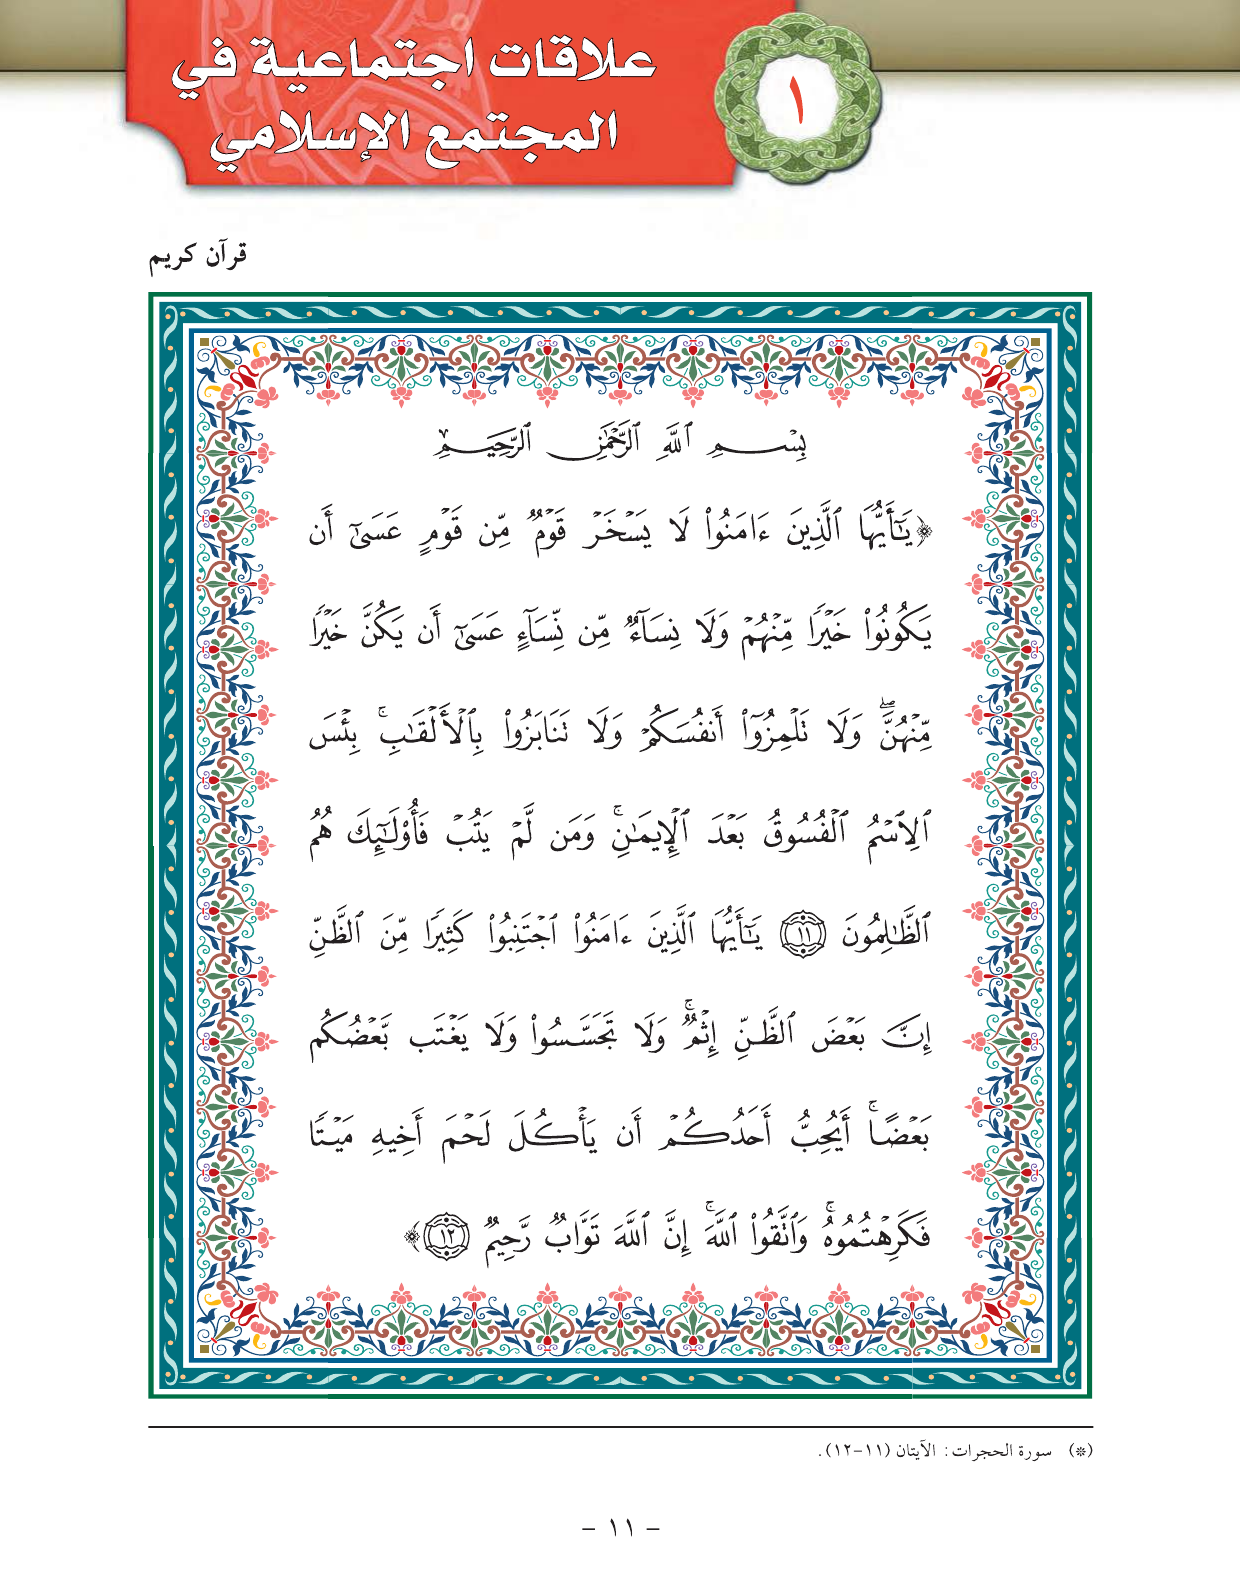 ١
علاقات اجتماعية في
المجتمع الإسلامي
قرآن كريم
بِسْمِ ٱللَّهِ ٱلرَّحْمَٰنِ ٱلرَّحِيمِ
﴿يَٰٓأَيُّهَا ٱلَّذِينَ ءَامَنُوا۟ لَا يَسْخَرْ قَوْمٌ مِّن قَوْمٍ عَسَىٰٓ أَن
يَكُونُوا۟ خَيْرًا مِّنْهُمْ وَلَا نِسَآءٌ مِّن نِّسَآءٍ عَسَىٰٓ أَن يَكُنَّ خَيْرًا
مِّنْهُنَّۖ وَلَا تَلْمِزُوٓا۟ أَنفُسَكُمْ وَلَا تَنَابَزُوا۟ بِٱلْأَلْقَٰبِۚ بِئْسَ
ٱلِٱسْمُ ٱلْفُسُوقُ بَعْدَ ٱلْإِيمَٰنِۚ وَمَن لَّمْ يَتُبْ فَأُو۟لَٰٓئِكَ هُمُ
ٱلظَّٰلِمُونَ ١١ يَٰٓأَيُّهَا ٱلَّذِينَ ءَامَنُوا۟ ٱجْتَنِبُوا۟ كَثِيرًا مِّنَ ٱلظَّنِّ
إِنَّ بَعْضَ ٱلظَّنِّ إِثْمٌۚ وَلَا تَجَسَّسُوا۟ وَلَا يَغْتَب بَّعْضُكُم
بَعْضًاۚ أَيُحِبُّ أَحَدُكُمْ أَن يَأْكُلَ لَحْمَ أَخِيهِ مَيْتًا
فَكَرِهْتُمُوهُۚ وَٱتَّقُوا۟ ٱللَّهَۚ إِنَّ ٱللَّهَ تَوَّابٌ رَّحِيمٌ ١٢﴾
(*) سورة الحجرات: الآيتان (١١-١٢).
- ١١ -